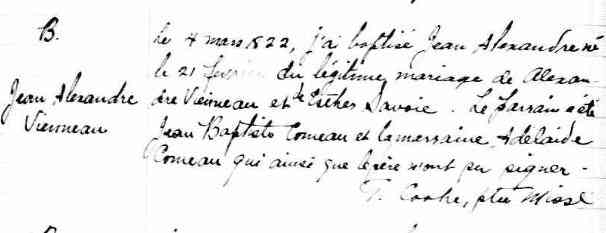 B.
Jean Alexandre
Vienneau
le 4 mars 1822, j'ai baptisé Jean Alexandre né
le 21 février du légitime mariage de Alexan
dre Vienneau et de Esther Savoie. Le parrain a été
Jean Baptiste Comeau et la marraine Adelaide
Comeau qui ainsi que le père n'ont pu signer -
T. Cooke, ptre Miss